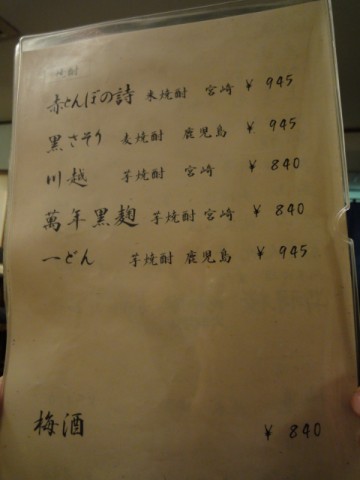 焼酎
赤とんぼの詩 米焼酎 宮崎 ¥ 945
黒さそり 麦焼酎 鹿児島 ¥ 945
川越 芋焼酎 宮崎 ¥ 840
萬年黒麹 芋焼酎 宮崎 ¥ 840
一どん 芋焼酎 鹿児島 ¥ 945
梅酒 ¥ 840